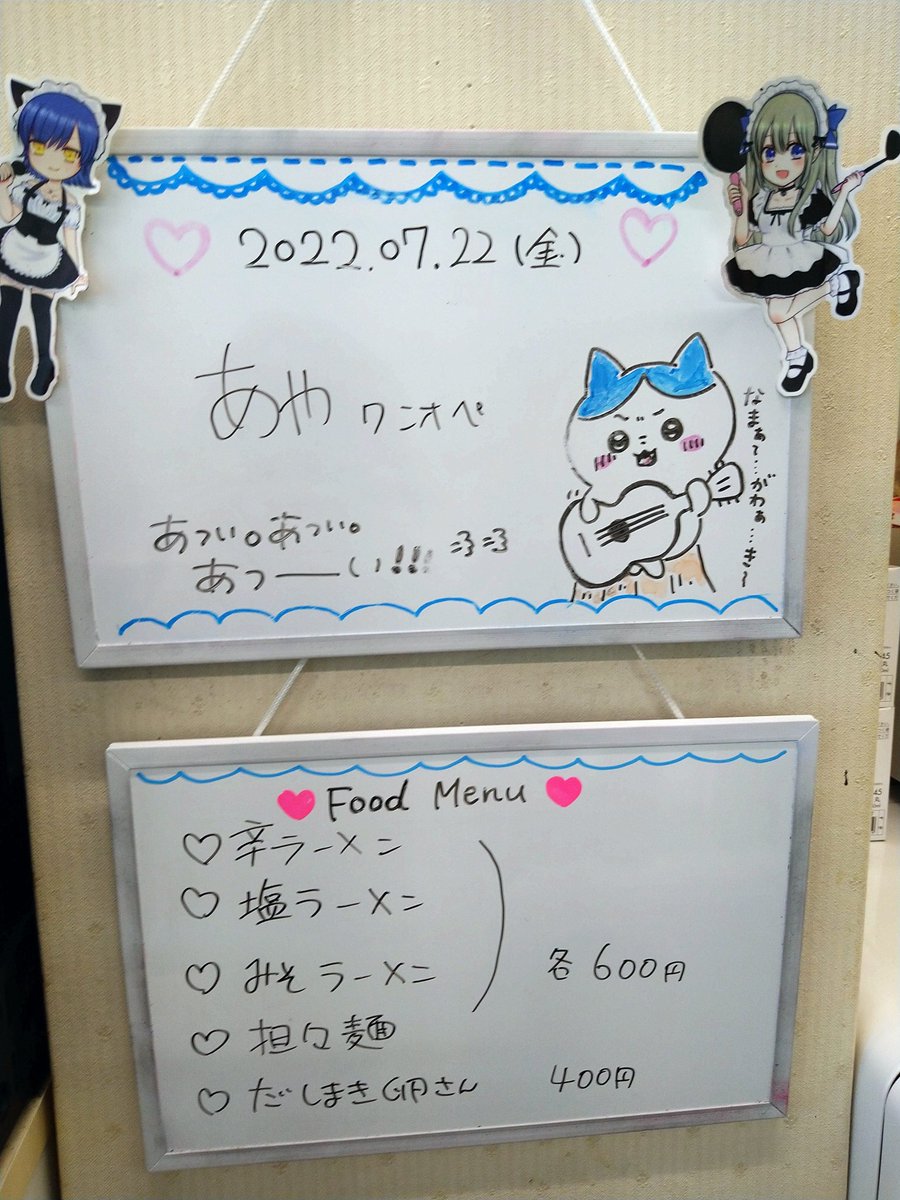 2022.07.22(金)
あや ワンオペ
なまぁ〜…がわぁ…き〜
あつい。あつい。
あつ──い!!!
Food Menu
辛ラーメン
塩ラーメン
みそラーメン
各600円
担々麺
だしまき卵さん 400円